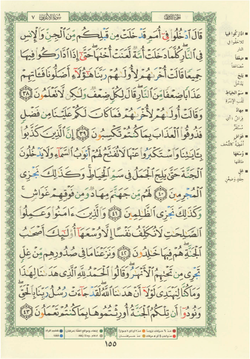 الجزء الثامن
سورة الأعراف ٧
قَالَ ٱدْخُلُوا۟ فِىٓ أُمَمٍ قَدْ خَلَتْ مِن قَبْلِكُم مِّنَ ٱلْجِنِّ وَٱلْإِنسِ
فِى ٱلنَّارِ كُلَّمَا دَخَلَتْ أُمَّةٌ لَّعَنَتْ أُخْتَهَا حَتَّىٰٓ إِذَا ٱدَّارَكُوا۟ فِيهَا
جَمِيعًا قَالَتْ أُخْرَىٰهُمْ لِأُولَىٰهُمْ رَبَّنَا هَٰٓؤُلَآءِ أَضَلُّونَا فَـَٔاتِهِمْ
عَذَابًا ضِعْفًا مِّنَ ٱلنَّارِ قَالَ لِكُلٍّ ضِعْفٌ وَلَٰكِن لَّا تَعْلَمُونَ ٣٨
وَقَالَتْ أُولَىٰهُمْ لِأُخْرَىٰهُمْ فَمَا كَانَ لَكُمْ عَلَيْنَا مِن فَضْلٍ
فَذُوقُوا۟ ٱلْعَذَابَ بِمَا كُنتُمْ تَكْسِبُونَ ٣٩ إِنَّ ٱلَّذِينَ كَذَّبُوا۟
بِـَٔايَٰتِنَا وَٱسْتَكْبَرُوا۟ عَنْهَا لَا تُفَتَّحُ لَهُمْ أَبْوَٰبُ ٱلسَّمَآءِ وَلَا يَدْخُلُونَ
ٱلْجَنَّةَ حَتَّىٰ يَلِجَ ٱلْجَمَلُ فِى سَمِّ ٱلْخِيَاطِ وَكَذَٰلِكَ نَجْزِى
ٱلْمُجْرِمِينَ ٤٠ لَهُم مِّن جَهَنَّمَ مِهَادٌ وَمِن فَوْقِهِمْ غَوَاشٍ
وَكَذَٰلِكَ نَجْزِى ٱلظَّٰلِمِينَ ٤١ وَٱلَّذِينَ ءَامَنُوا۟ وَعَمِلُوا۟
ٱلصَّٰلِحَٰتِ لَا نُكَلِّفُ نَفْسًا إِلَّا وُسْعَهَآ أُو۟لَٰٓئِكَ أَصْحَٰبُ
ٱلْجَنَّةِ هُمْ فِيهَا خَٰلِدُونَ ٤٢ وَنَزَعْنَا مَا فِى صُدُورِهِم مِّنْ غِلٍّ
تَجْرِى مِن تَحْتِهِمُ ٱلْأَنْهَٰرُ وَقَالُوا۟ ٱلْحَمْدُ لِلَّهِ ٱلَّذِى هَدَىٰنَا لِهَٰذَا
وَمَا كُنَّا لِنَهْتَدِىَ لَوْلَآ أَنْ هَدَىٰنَا ٱللَّهُ لَقَدْ جَآءَتْ رُسُلُ رَبِّنَا بِٱلْحَقِّ
وَنُودُوٓا۟ أَن تِلْكُمُ ٱلْجَنَّةُ أُورِثْتُمُوهَا بِمَا كُنتُمْ تَعْمَلُونَ ٤٣
١٥٥